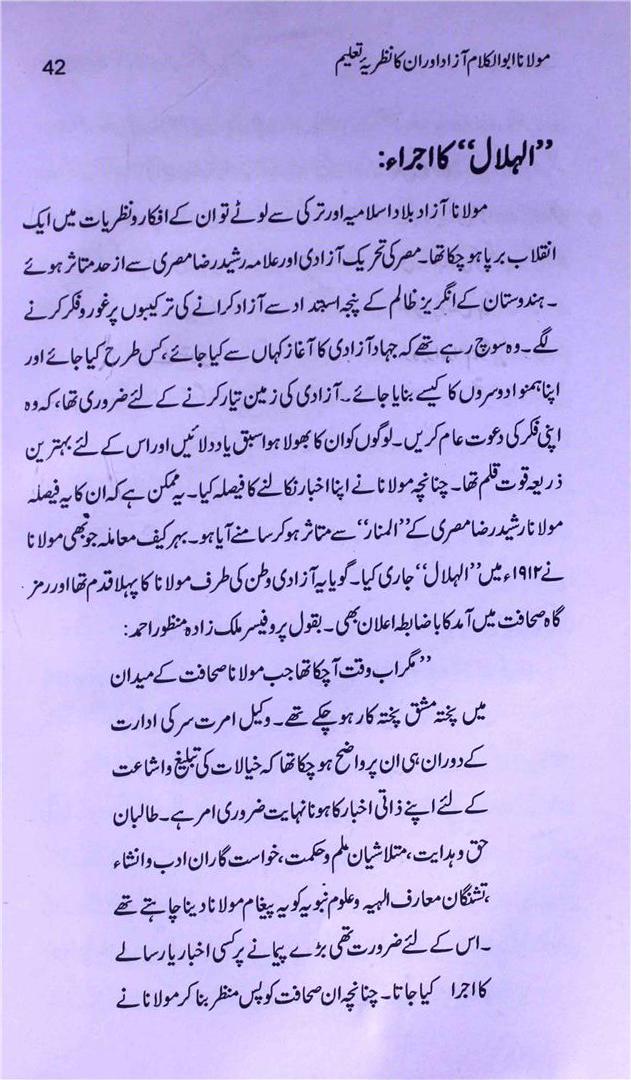 مولانا ابوالکلام آزاد اور ان کا نظریۂ تعلیم
42
”الہلال“ کا اجراء:
مولانا آزاد بلاد اسلامیہ اور ترکی سے لوٹے تو ان کے افکار و نظریات میں ایک
انقلاب برپا ہو چکا تھا۔ مصر کی تحریک آزادی اور علامہ رشید رضا مصری سے ازحد متاثر ہوئے
۔ ہندوستان کے انگریز ظالم کے پنجہ استبداد سے آزاد کرانے کی ترکیبوں پر غور و فکر کرنے
لگے۔ وہ سوچ رہے تھے کہ جہاد آزادی کا آغاز کہاں سے کیا جائے، کس طرح کیا جائے اور
اپنا ہمنوا دوسروں کا کیسے بنایا جائے۔ آزادی کی زمین تیار کرنے کے لئے ضروری تھا، کہ وہ
اپنی فکر کی دعوت عام کریں۔ لوگوں کو ان کا بھولا ہوا سبق یاد دلائیں اور اس کے لئے بہترین
ذریعہ قوت قلم تھا۔ چنانچہ مولانا نے اپنا اخبار نکالنے کا فیصلہ کیا۔ یہ ممکن ہے کہ ان کا یہ فیصلہ
مولانا رشید رضا مصری کے ”المنار“ سے متاثر ہو کر سامنے آیا ہو۔ بہر کیف معاملہ جو بھی مولانا
نے ۱۹۱۲ء میں ”الہلال“ جاری کیا۔ گویا یہ آزادی وطن کی طرف مولانا کا پہلا قدم تھا اور رمز
گاہ صحافت میں آمد کا باضابطہ اعلان بھی۔ بقول پروفیسر ملک زادہ منظور احمد:
”مگر اب وقت آ چکا تھا جب مولانا صحافت کے میدان
میں پختہ مشق پختہ کار ہو چکے تھے۔ وکیل امرت سر کی ادارت
کے دوران ہی ان پر واضح ہو چکا تھا کہ خیالات کی تبلیغ و اشاعت
کے لئے اپنے ذاتی اخبار کا ہونا نہایت ضروری امر ہے۔ طالبان
حق و ہدایت، متلاشیان ملم و حکمت، خواست گاران ادب و انشاء
،تشنگان معارف الہیہ و علوم نبویہ کو یہ پیغام مولانا دینا چاہتے تھے
۔ اس کے لئے ضرورت تھی بڑے پیمانے پر کسی اخبار یا رسالے
کا اجرا کیا جاتا۔ چنانچہ ان صحافت کو پس منظر بنا کر مولانا نے